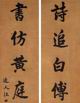 詩追白傅
書仿黃庭